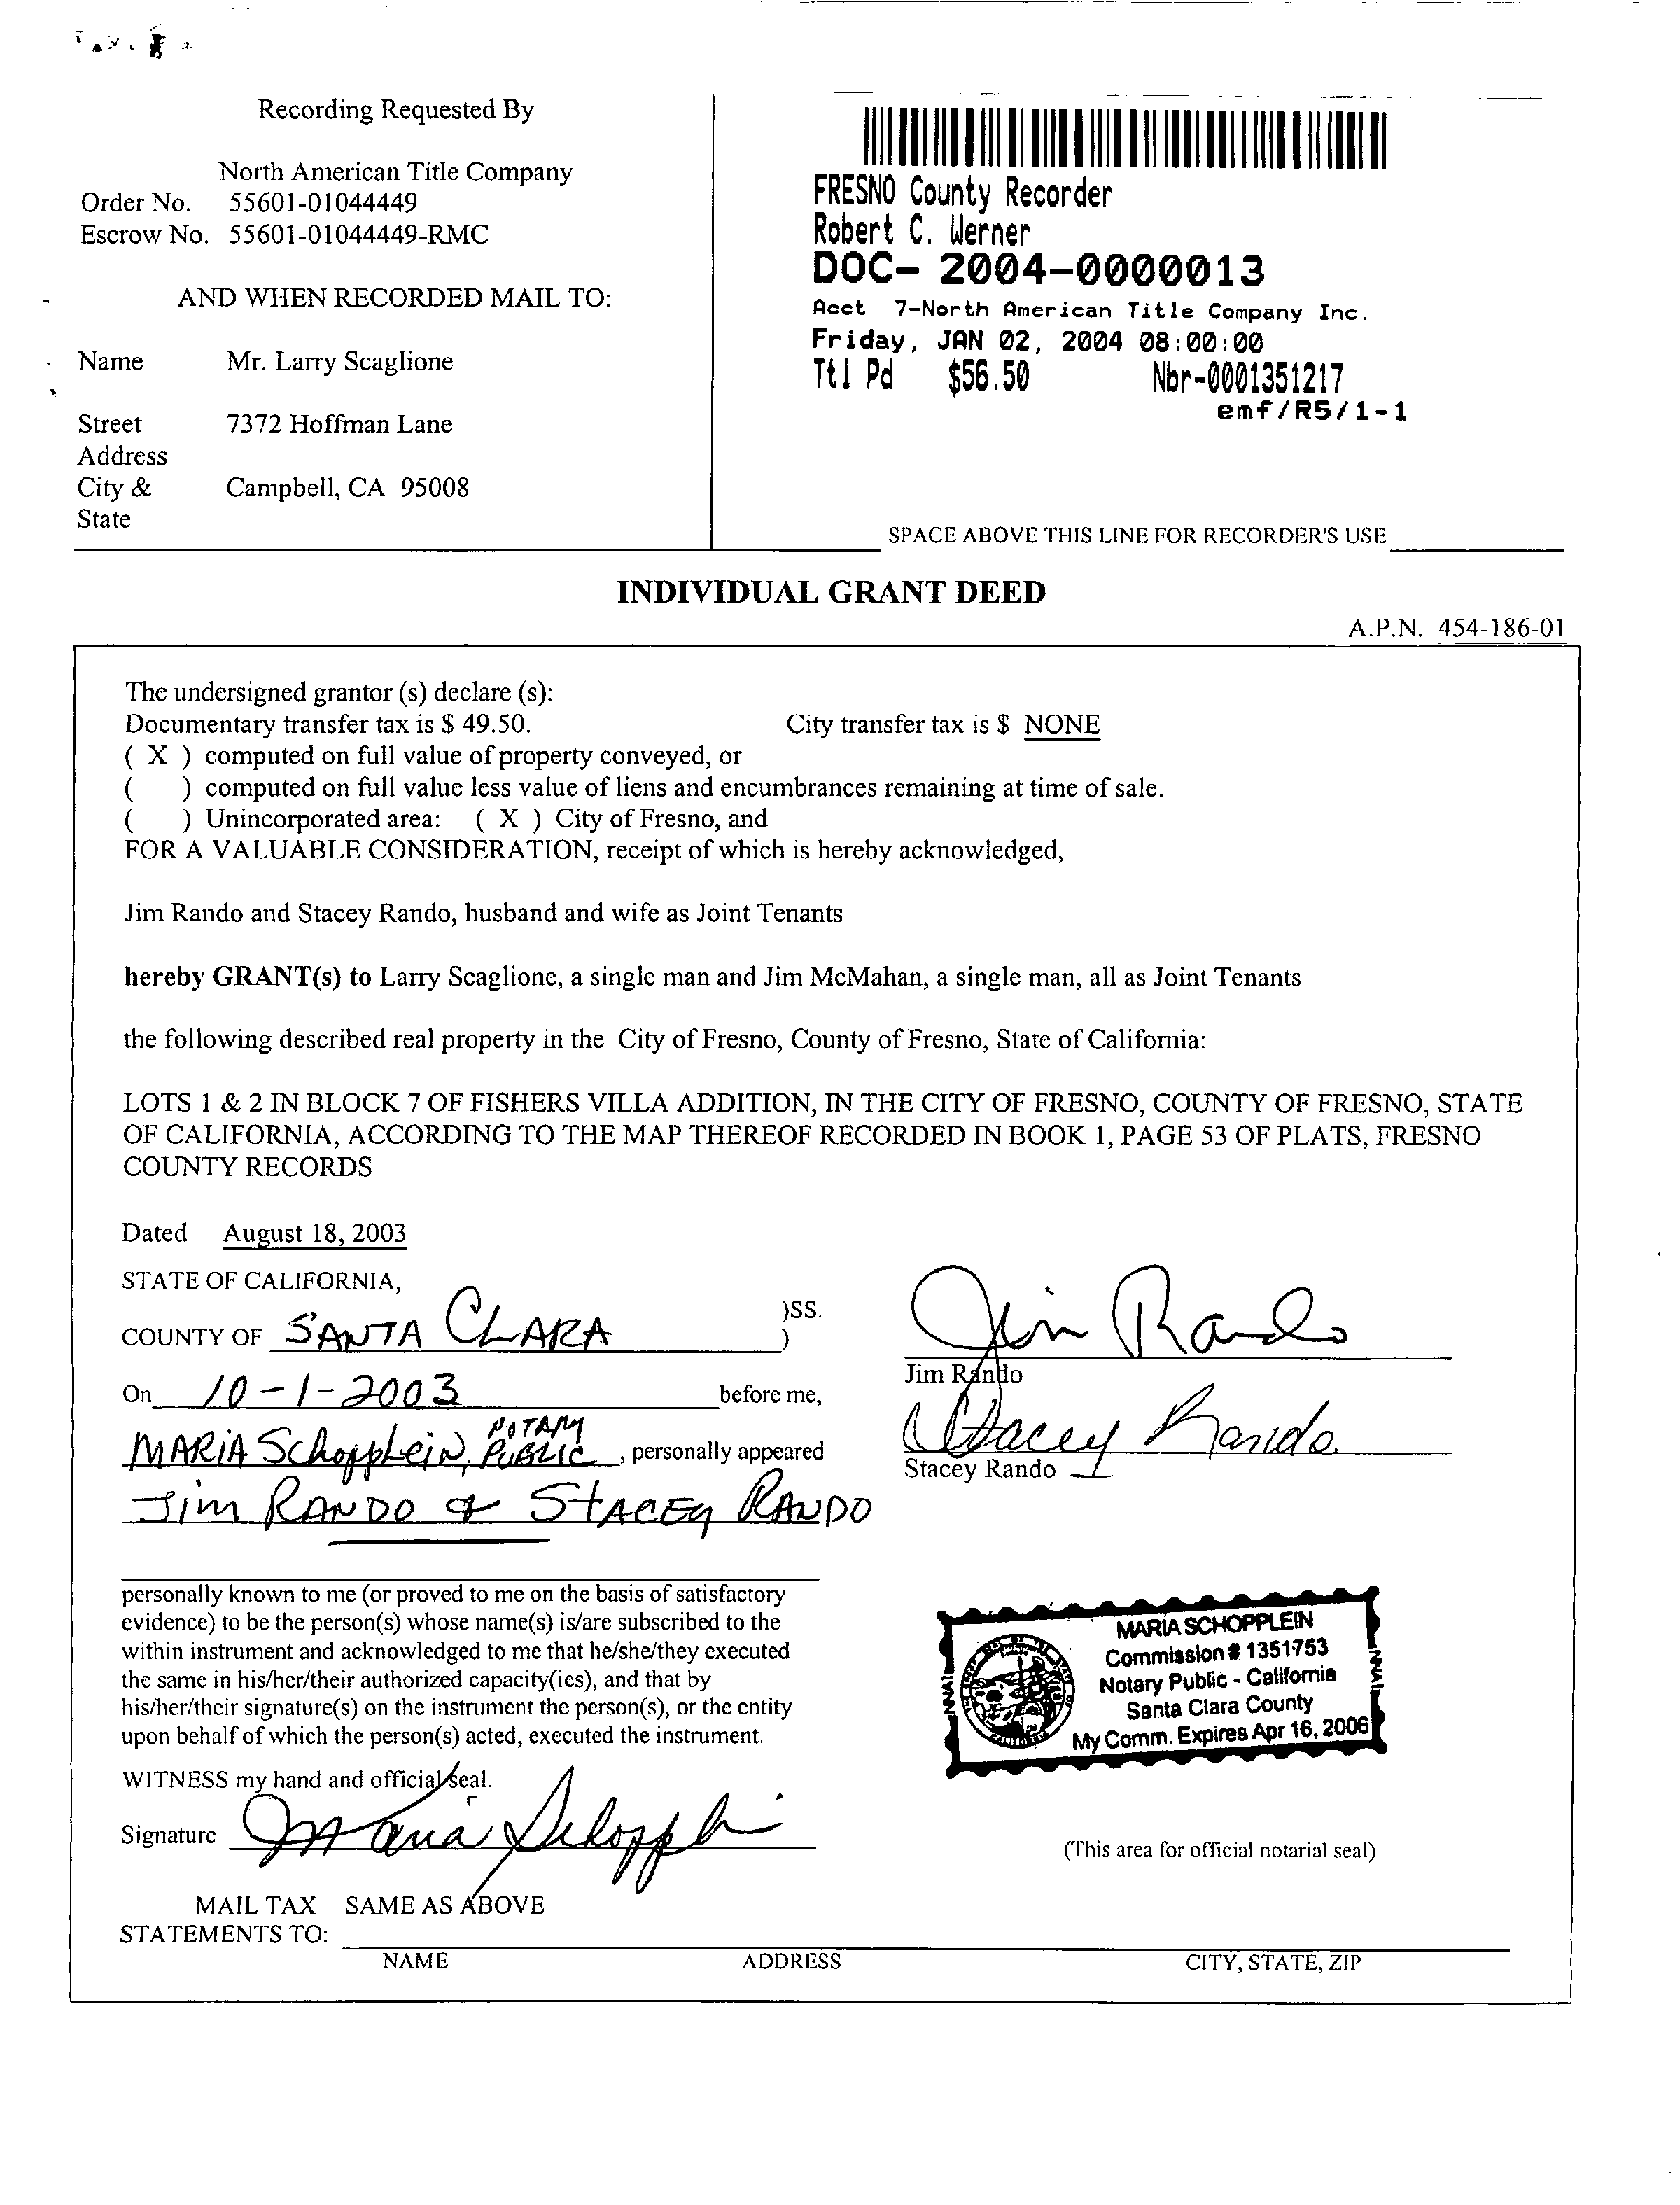 Recording Requested By
North American Title Company
Order No. 55601-01044449
Escrow No. 55601-01044449-RMC
AND WHEN RECORDED MAIL TO:
Name Mr. Larry Scaglione
Street Address 7372 Hoffman Lane
City & State Campbell, CA 95008
FRESNO County Recorder
Robert C. Werner
DOC- 2004-0000013
Acct 7-North American Title Company Inc.
Friday, JAN 02, 2004 08:00:00
Ttl Pd $56.50 Nbr-0001351217
emf/R5/1-1
SPACE ABOVE THIS LINE FOR RECORDER'S USE
INDIVIDUAL GRANT DEED
A.P.N. 454-186-01
The undersigned grantor (s) declare (s):
Documentary transfer tax is $ 49.50. City transfer tax is $ NONE
( X ) computed on full value of property conveyed, or
( ) computed on full value less value of liens and encumbrances remaining at time of sale.
( ) Unincorporated area: ( X ) City of Fresno, and
FOR A VALUABLE CONSIDERATION, receipt of which is hereby acknowledged,
Jim Rando and Stacey Rando, husband and wife as Joint Tenants
hereby GRANT(s) to Larry Scaglione, a single man and Jim McMahan, a single man, all as Joint Tenants
the following described real property in the City of Fresno, County of Fresno, State of California:
LOTS 1 & 2 IN BLOCK 7 OF FISHERS VILLA ADDITION, IN THE CITY OF FRESNO, COUNTY OF FRESNO, STATE
OF CALIFORNIA, ACCORDING TO THE MAP THEREOF RECORDED IN BOOK 1, PAGE 53 OF PLATS, FRESNO
COUNTY RECORDS
Dated August 18, 2003
STATE OF CALIFORNIA,
)SS.
COUNTY OF SANTA CLARA )
On 10-1-2003 before me,
MARIA Schopplein, NOTARY PUBLIC, personally appeared
Jim RANDO & STACEY RANDO
Jim Rando
Jim Rando
Stacey Rando
Stacey Rando
personally known to me (or proved to me on the basis of satisfactory
evidence) to be the person(s) whose name(s) is/are subscribed to the
within instrument and acknowledged to me that he/she/they executed
the same in his/her/their authorized capacity(ies), and that by
his/her/their signature(s) on the instrument the person(s), or the entity
upon behalf of which the person(s) acted, executed the instrument.
WITNESS my hand and official seal.
Signature Maria Schopplein
MARIA SCHOPPLEIN
Commission # 1351753
Notary Public - California
Santa Clara County
My Comm. Expires Apr 16, 2006
(This area for official notarial seal)
MAIL TAX SAME AS ABOVE
STATEMENTS TO:
NAME ADDRESS CITY, STATE, ZIP